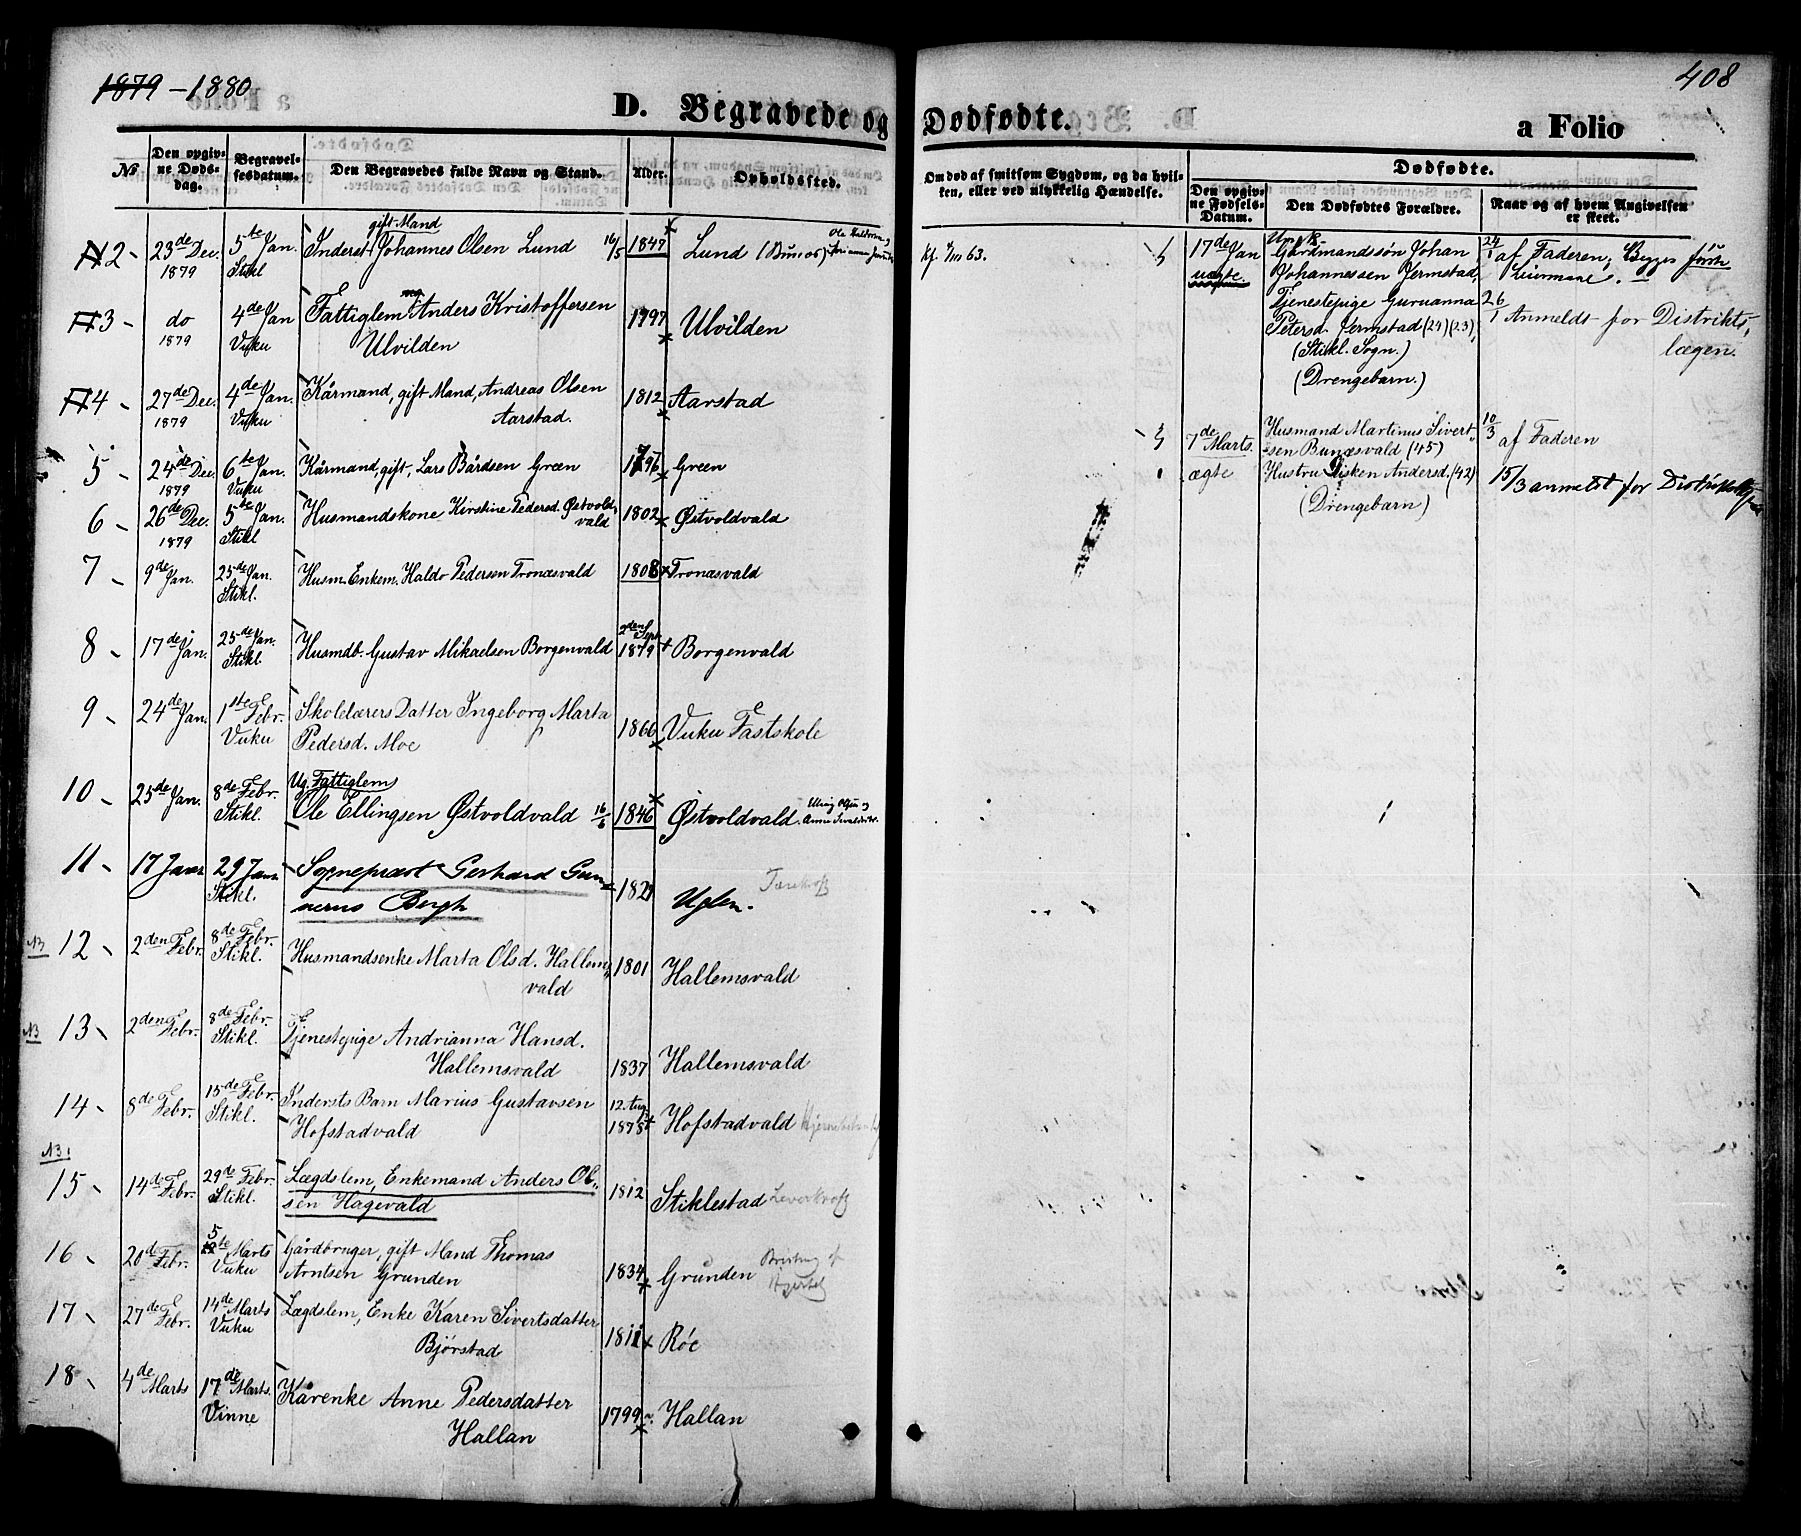 1879 - 1880
408
D. Begravede og Dødfødte.
a Folio
No
Den opgivne Dødsdag.
Begravelsesdatum.
Den Begravedes fulde Navn og Stand.
Alder.
Opholdssted.
Om død af smitsom Sygdom, og da hvilken, eller ved ulykkelig Hændelse.
Dødfødte.
Den opgivne Fødsels-Datum.
Den Dødfødtes Forældre.
Naar og af hvem Angivelsen er skeet.
2 - 23de Dec. 1879 5te Jan. Stikl
gift Mand
Inderst Johannes Olsen Lund 16/5 1847 Lund
3 - do 1879 4de Jan Vuku Fattiglem Anders Kristoffersen
Ulvilden 1797 Ulvilden
4 - 27de Dec. 1879 4de Jan. Vuku Kårmand, gift Mand, Andreas Olsen
Aarstad. 1812 Aarstad
5 - 24de Dec. 1879 6te Jan. Vuku Kårmand, gift, Lars Bårdsen Green 1796 Green
6 - 26de Dec. 1879 5te Jan. Stikl Husmandskone Kirstine Pedersd. Østvold-
vald 1802 Østvoldvald
7 - 9de Jan. 25de Jan. Stikl. Husm. Enkem. Haldo Pedersen Tronæsvald 1808 Tronæsvald
8 - 17de Jan. 25de Jan. Stikl. Husmdb. Gustav Mikaelsen Borgenvald 2den Sept. 1879 Borgenvald
9 - 24de Jan. 1ste Febr. Vuku Skolelærers Datter Ingeborg Marta
Pedersd. Moe 1866 Vuku Fastskole
10 - 25de Jan. 8de Febr. Stikl. Ug. Fattiglem
Ole Ellingsen Østvoldvald 16/6 1846 Østvoldvald.
11 - 17 Janr 29 Janr Stikl. Sogneprest Gerhard Gun-
nerus Bergh 1829 Uglen.
NB 12 - 2den Febr. 8de Febr. Stikl. Husmandsenke Marta Olsd. Hallem-
vald 1801 Hallemsvald
NB 13 - 2den Febr. 8de Febr. Stikl. Tjenestepige Andrianna Hansd.
Hallemsvald 1837 Hallemsvald
14 - 8de Febr. 15de Febr. Stikl. Indersts Barn Marius Gustavsen
Hofstadvald 12. Aug. 1878 Hofstadvald
NB.
15 - 14de Febr. 29de Febr. Stikl. Lægdslem, Enkemand Anders Ol-
sen Hagevald 1812 Stiklestad Leverkræft
16 - 20de Febr. 5te Marts Vuku Gårdbruger, gift Mand Thomas
Arntsen Grunden 1834 Grunden
17 - 27de Febr. 14de Marts Vuku Lægdslem, Enke Karen Sivertsdatter
Bjørstad 1811 Røe
18 - 4de Marts 17de Marts. Vinne Kårenke Anne Pedersdatter
Hallan 1799 Hallan
17de Jan
uægte
Gårdmandssøn Johan
Johannessen Jermstad,
Tjenestepige Guruanna
Petersd. Jermstad (24) (23),
(Stikl. Sogn.)
(Drengebarn.)
24/1 af Faderen;
26/1 Anmeldt for Distrikts-
lægen.
7de Marts.
ægte
Husmand Martinus Sivert-
sen Bunæsvald (45)
Hustru Gisken Andersd. (42)
(Drengebarn)
10/3 af Faderen
15/3 anmeldt for